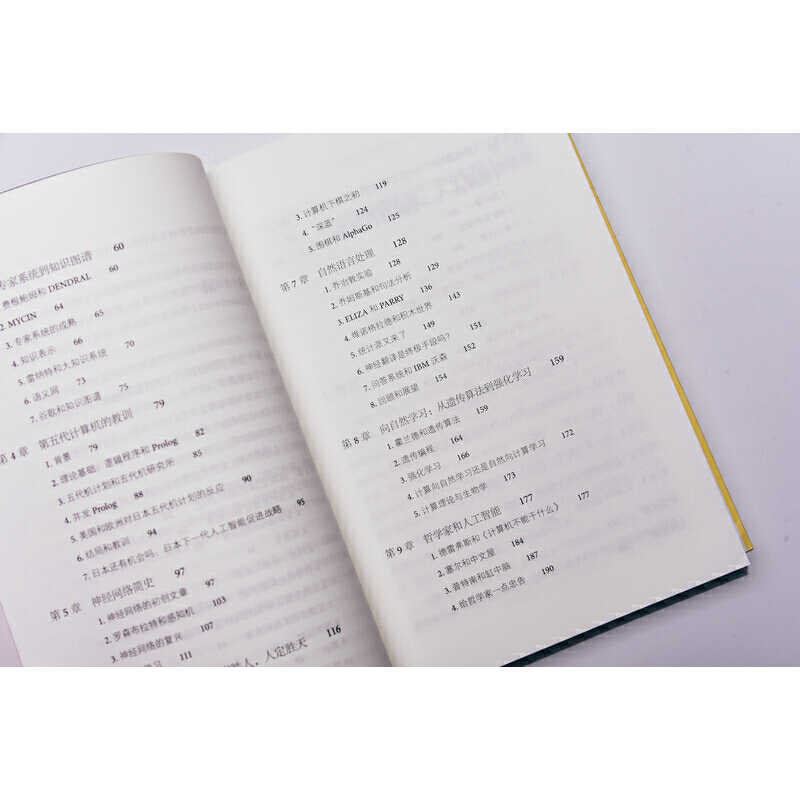 专家系统到知识图谱 60
费根鲍姆和 DENDRAL 60
2. MYCIN 64
3. 专家系统的成熟 65
4. 知识表示 66
5. 雷纳特和大知识系统 70
6. 语义网 73
7. 谷歌和知识图谱 75
第 4 章 第五代计算机的教训 79
1. 背景 79
2. 理论基础：逻辑程序和 Prolog 82
3. 五代机计划和五代机研究所 85
4. 并发 Prolog 88
5. 美国和欧洲对日本五代机计划的反应 90
6. 结局和教训 94
7. 日本还有机会吗：日本下一代人工智能促进战略 95
第 5 章 神经网络简史 97
1. 神经网络的初创文章 97
2. 罗森布拉特和感知机 103
3. 神经网络的复兴 107
学习 111
胜人，人定胜天 116
3. 计算机下棋之初 119
4. “深蓝” 124
5. 围棋和 AlphaGo 125
第 7 章 自然语言处理 128
1. 乔治敦实验 128
2. 乔姆斯基和句法分析 129
3. ELIZA 和 PARRY 136
4. 维诺格拉德和积木世界 143
5. 统计派又来了 149
6. 神经翻译是终极手段吗？ 151
7. 问答系统和 IBM 沃森 152
8. 回顾和展望 154
第 8 章 向自然学习：从遗传算法到强化学习 159
1. 霍兰德和遗传算法 159
2. 遗传编程 164
3. 强化学习 166
4. 计算向自然学习还是自然向计算学习 172
5. 计算理论与生物学 173
第 9 章 哲学家和人工智能 177
1. 德雷弗斯和《计算机不能干什么》 177
2. 塞尔和中文屋 184
3. 普特南和缸中脑 187
4. 给哲学家一点忠告 190